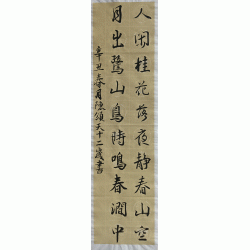 人闲桂花落夜静春山空
月出鹭山鳥時鳴春澗中
辛丑春月陳領天十二歲書